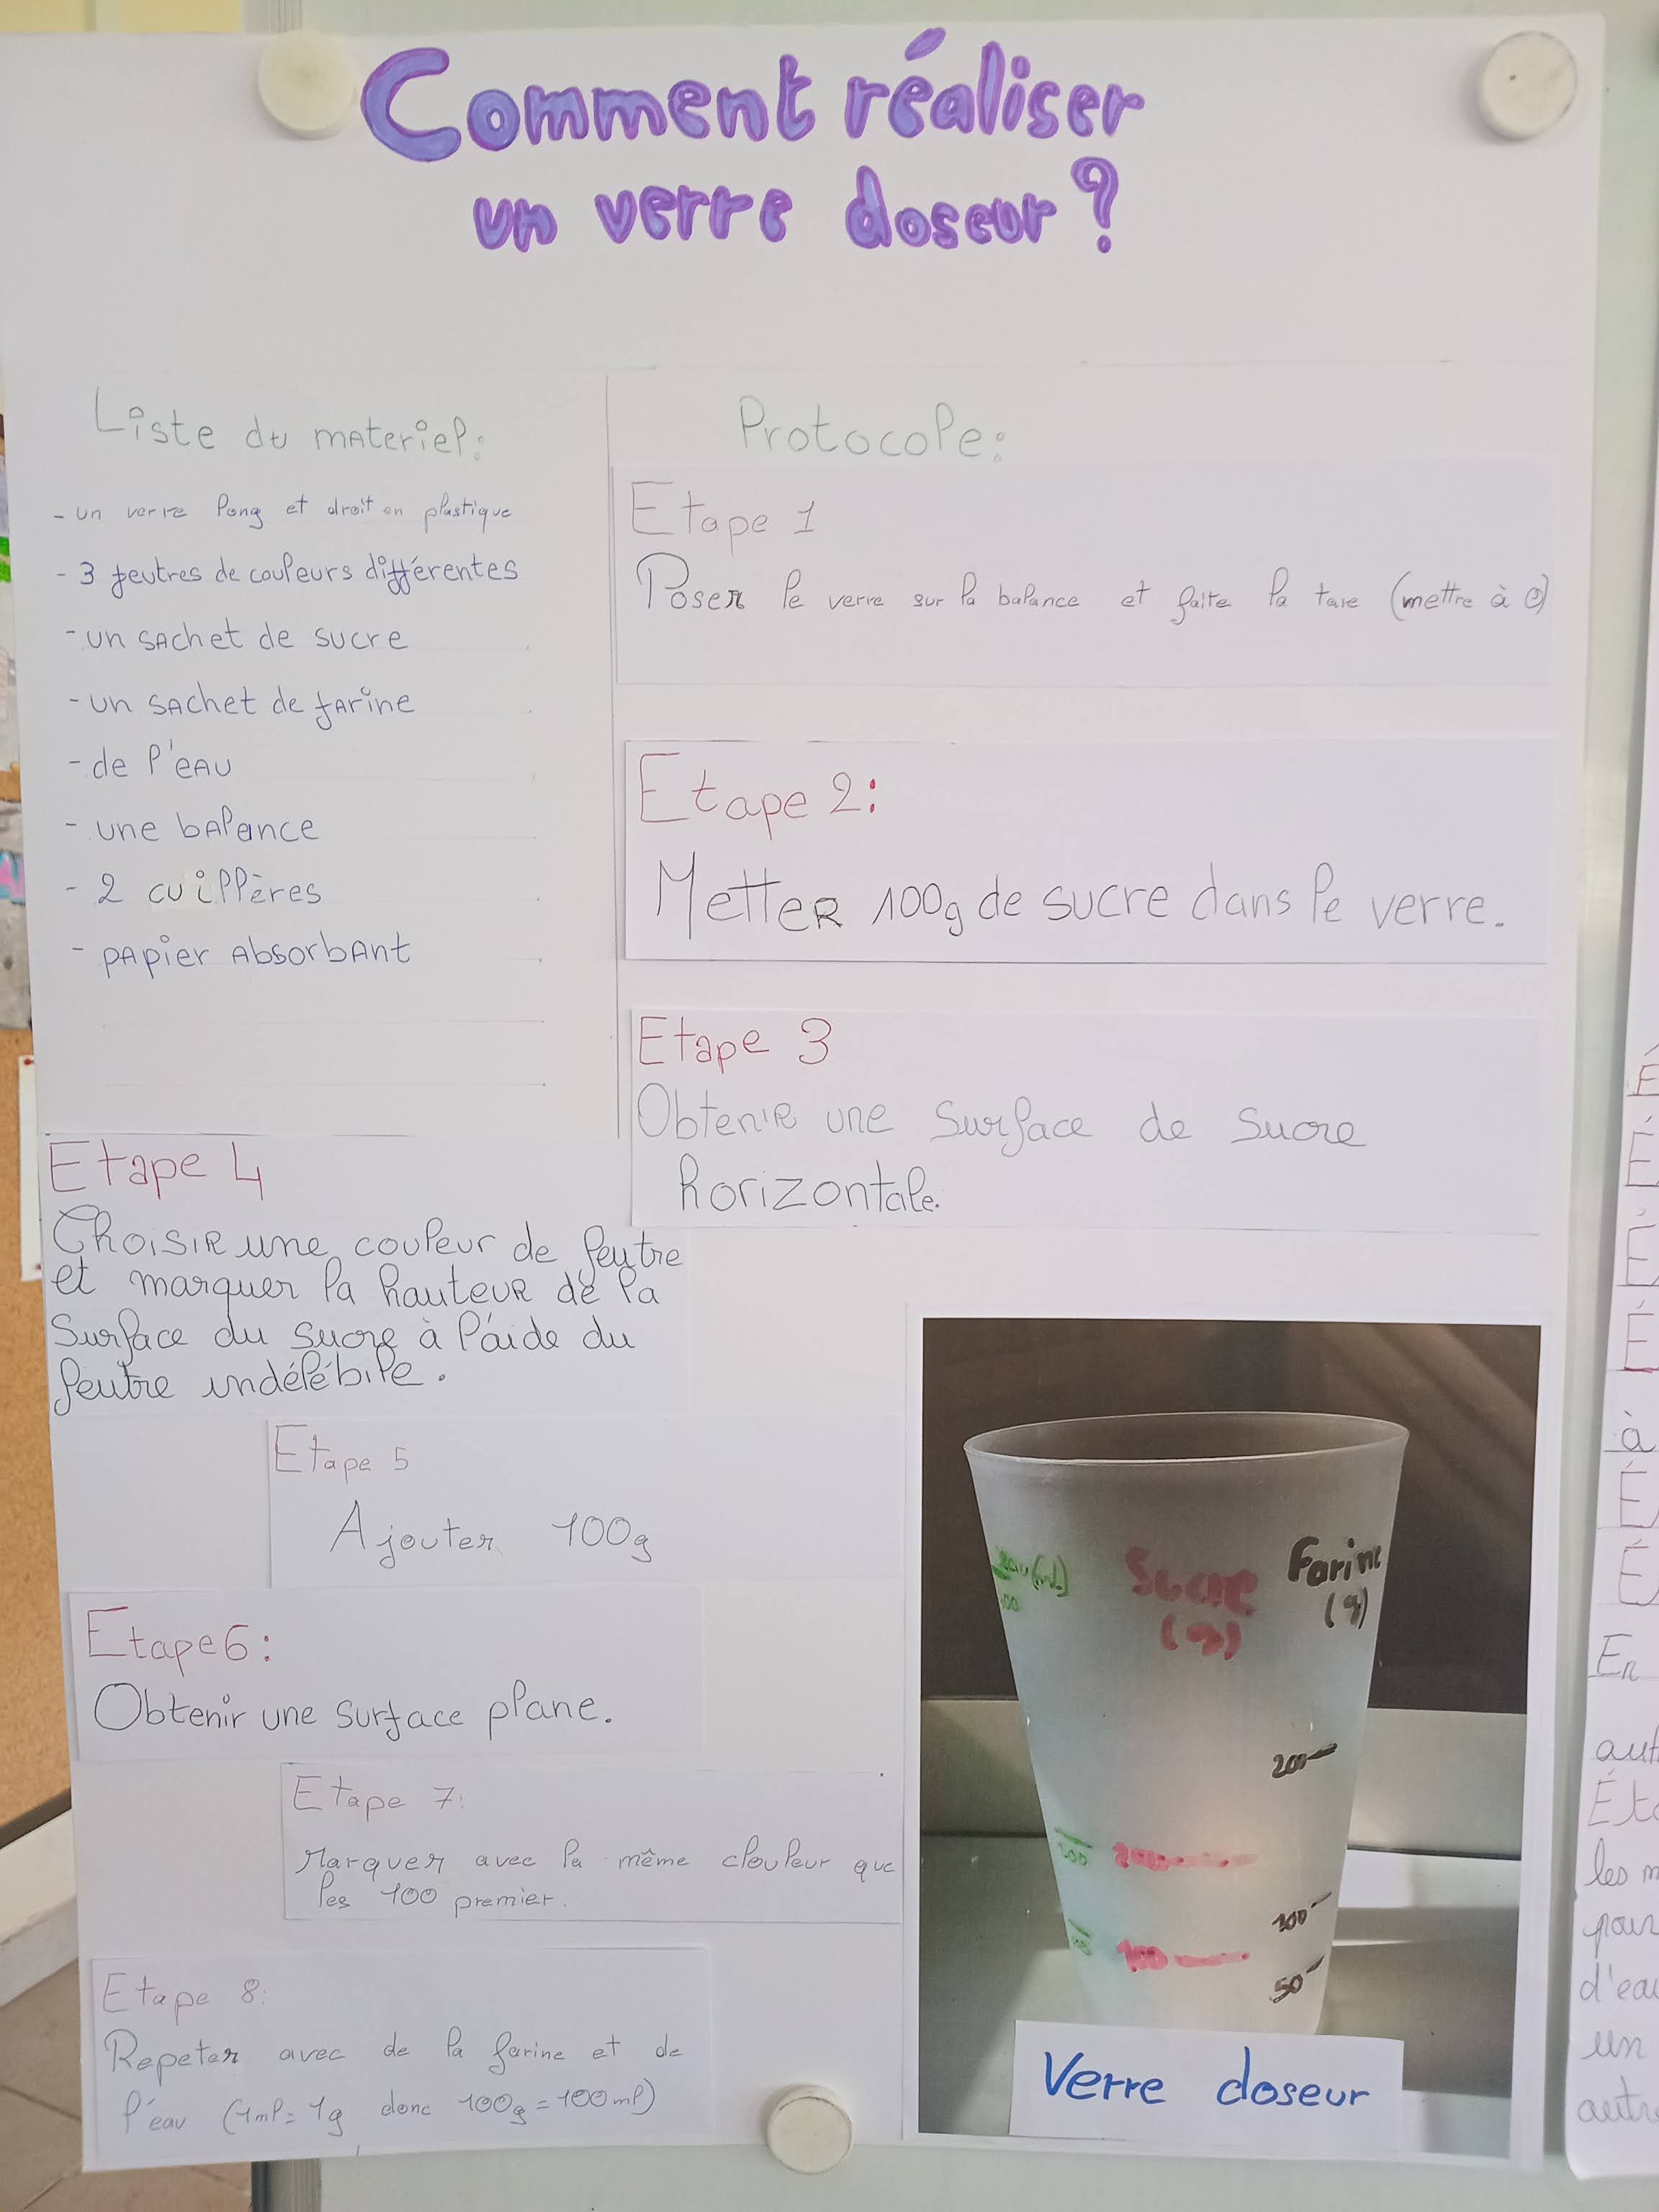 Comment réaliser
un verre doseur ?
Liste du materiel:
- un verre long et droit en plastique
- 3 feutres de couleurs différentes
- un sachet de sucre
- un sachet de farine
- de l'eau
- une balance
- 2 cuillères
- papier absorbant
Protocole:
Etape 1
Poser le verre sur la balance et faite la tare (mettre à 0)
Etape 2:
Metter 100g de sucre dans le verre.
Etape 3
Obtenir une surface de sucre
horizontale.
Etape 4
Choisir une couleur de feutre
et marquer la hauteur de la
surface du sucre à l'aide du
feutre indélébile.
Etape 5
Ajouter 100g
Etape 6:
Obtenir une surface plane.
Etape 7:
Marquer avec la même clouleur que
les 100 premier.
Etape 8:
Repeter avec de la farine et de
l'eau (1ml = 1g donc 100g = 100ml)
eau (mL)
Sucre
(g)
200
100
Farine
(g)
200
100
50
Verre doseur
É
É
É
É
à
É
É
En
aut
Éta
les m
pour
d'eau
un
autre